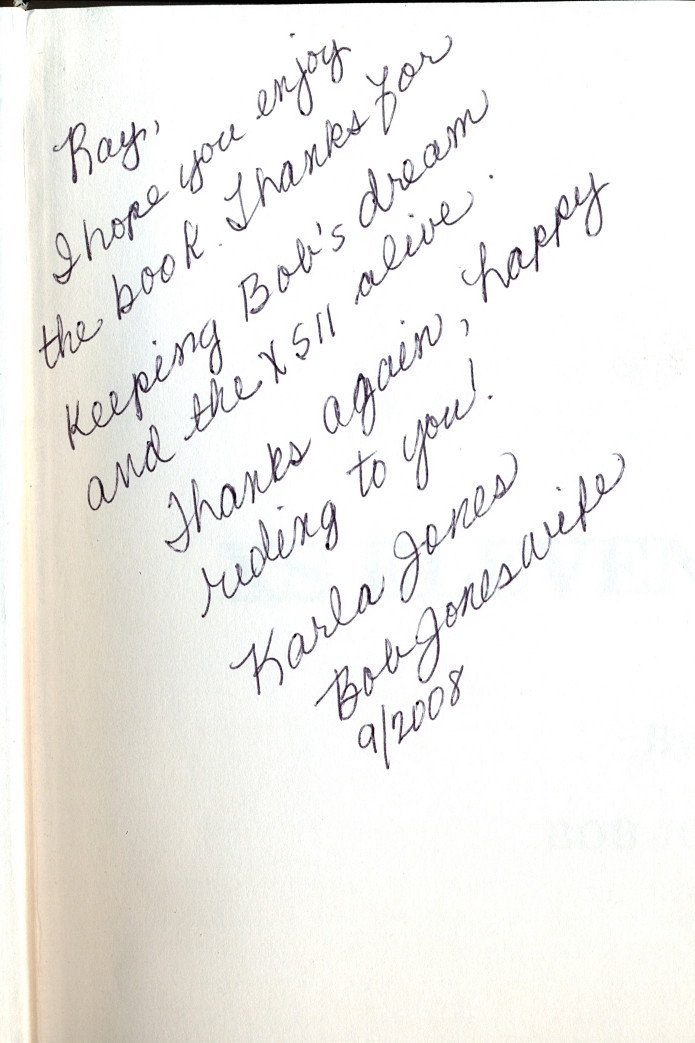 Ray,
I hope you enjoy
the book. Thanks for
keeping Bob's dream
and the XS11 alive.
Thanks again, happy
riding to you!
Karla Jones
Bob Jones wife
9/2008
BOB